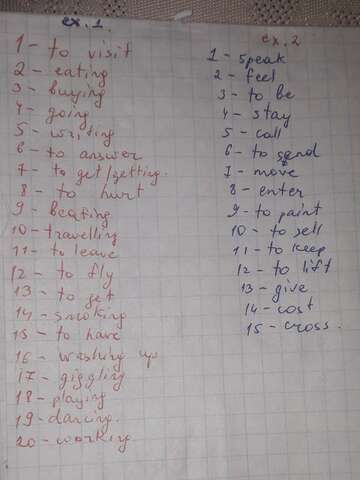 ex. 1
1 - to visit
2 - eating
3 - buying
4 - going
5 - writing
6 - to answer
7 - to get/getting.
8 - to hurt
9 - beating
10 - travelling
11 - to leave
12 - to fly
13 - to get
14 - smoking
15 - to have
16 - washing up
17 - giggling
18 - playing
19 - dancing.
20 - working
ex. 2
1 - speak
2 - feel
3 - to be
4 - stay
5 - call
6 - to send
7 - move
8 - enter
9 - to paint
10 - to sell
11 - to keep
12 - to lift
13 - give
14 - cost
15 - cross.